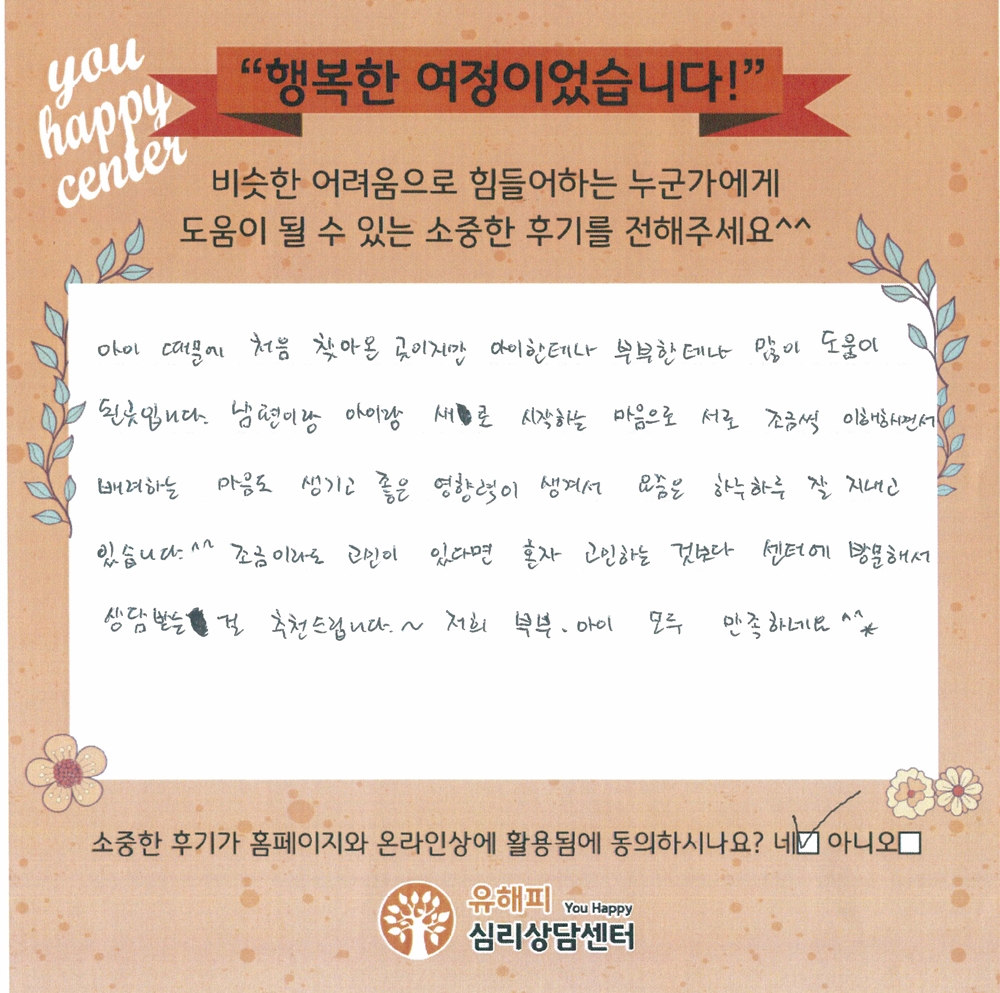 you
happy
center
“행복한 여정이었습니다!”
비슷한 어려움으로 힘들어하는 누군가에게
도움이 될 수 있는 소중한 후기를 전해주세요^^
아이 때문에 처음 찾아온 곳이지만 아이한테나 부부한테나 많이 도움이
된곳입니다. 남편이랑 아이랑 새로 시작하는 마음으로 서로 조금씩 이해하면서
배려하는 마음도 생기고 좋은 영향력이 생겨서 요즘은 하루하루 잘 지내고
있습니다^^ 조금이라도 고민이 있다면 혼자 고민하는 것보다 센터에 방문해서
상담받는 걸 추천드립니다.~ 저희 부부.아이 모두 만족하네요^^*
소중한 후기가 홈페이지와 온라인상에 활용됨에 동의하시나요? 네☑ 아니오☐
유해피 You Happy
심리상담센터